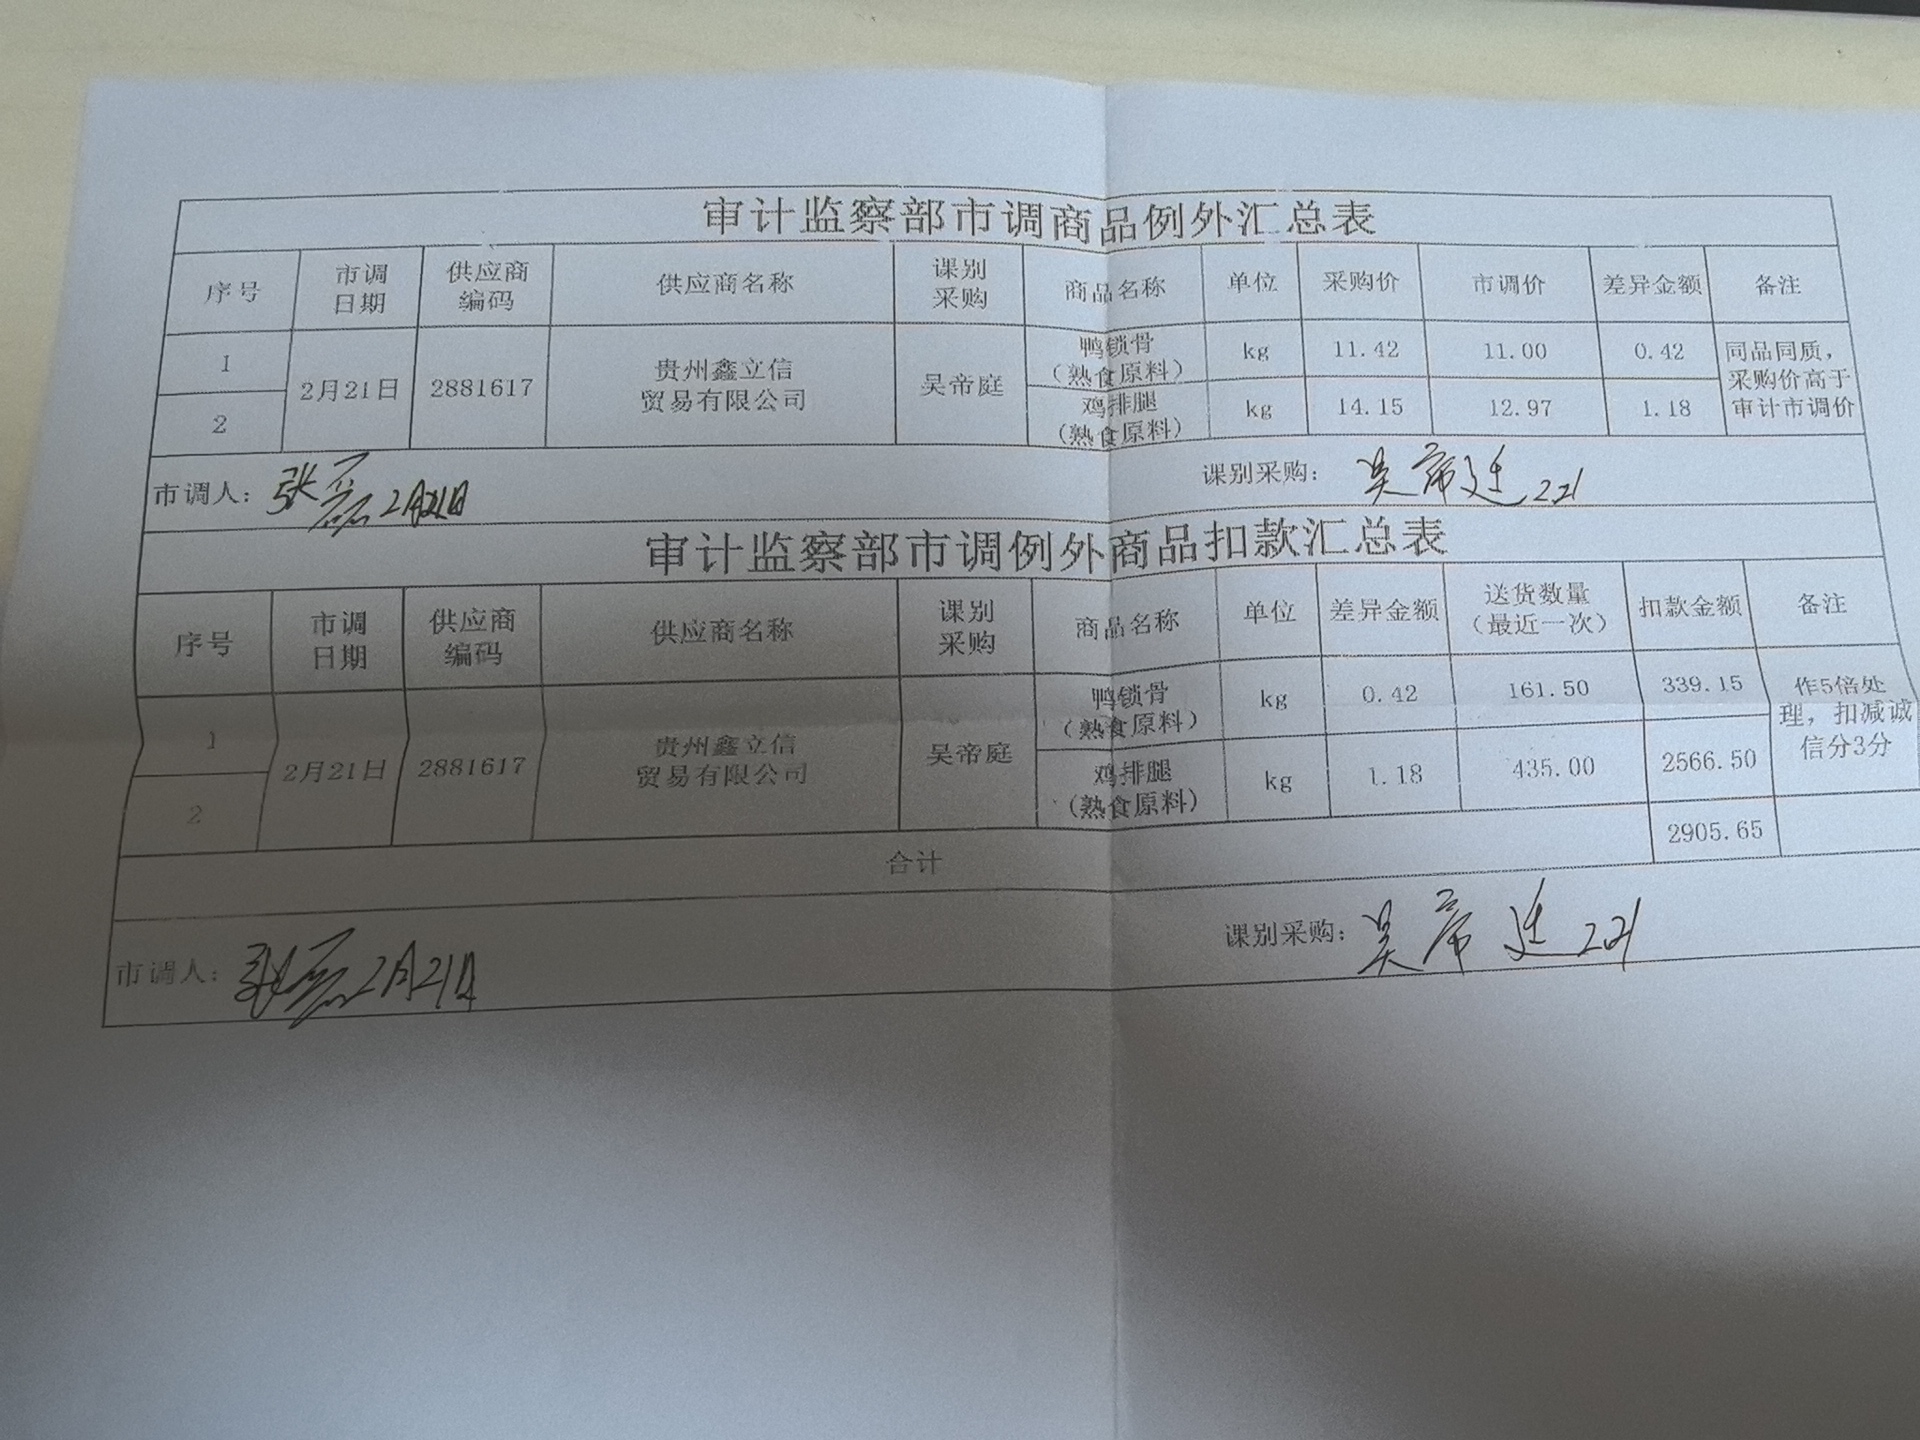 审计监察部市调商品例外汇总表
序号 市调日期 供应商编码 供应商名称 课别采购 商品名称 单位 采购价 市调价 差异金额 备注
1 2月21日 2881617 贵州鑫立信贸易有限公司 吴帝庭 鸭锁骨（熟食原料） kg 11.42 11.00 0.42 同品同质，采购价高于审计市调价
2 鸡排腿（熟食原料） kg 14.15 12.97 1.18
市调人：张磊 2月21日 课别采购：吴帝廷 221
审计监察部市调例外商品扣款汇总表
序号 市调日期 供应商编码 供应商名称 课别采购 商品名称 单位 差异金额 送货数量（最近一次） 扣款金额 备注
1 2月21日 2881617 贵州鑫立信贸易有限公司 吴帝庭 鸭锁骨（熟食原料） kg 0.42 161.50 339.15 作5倍处理，扣减诚信分3分
2 鸡排腿（熟食原料） kg 1.18 435.00 2566.50
合计 2905.65
市调人：张磊 2月21日 课别采购：吴帝廷 221